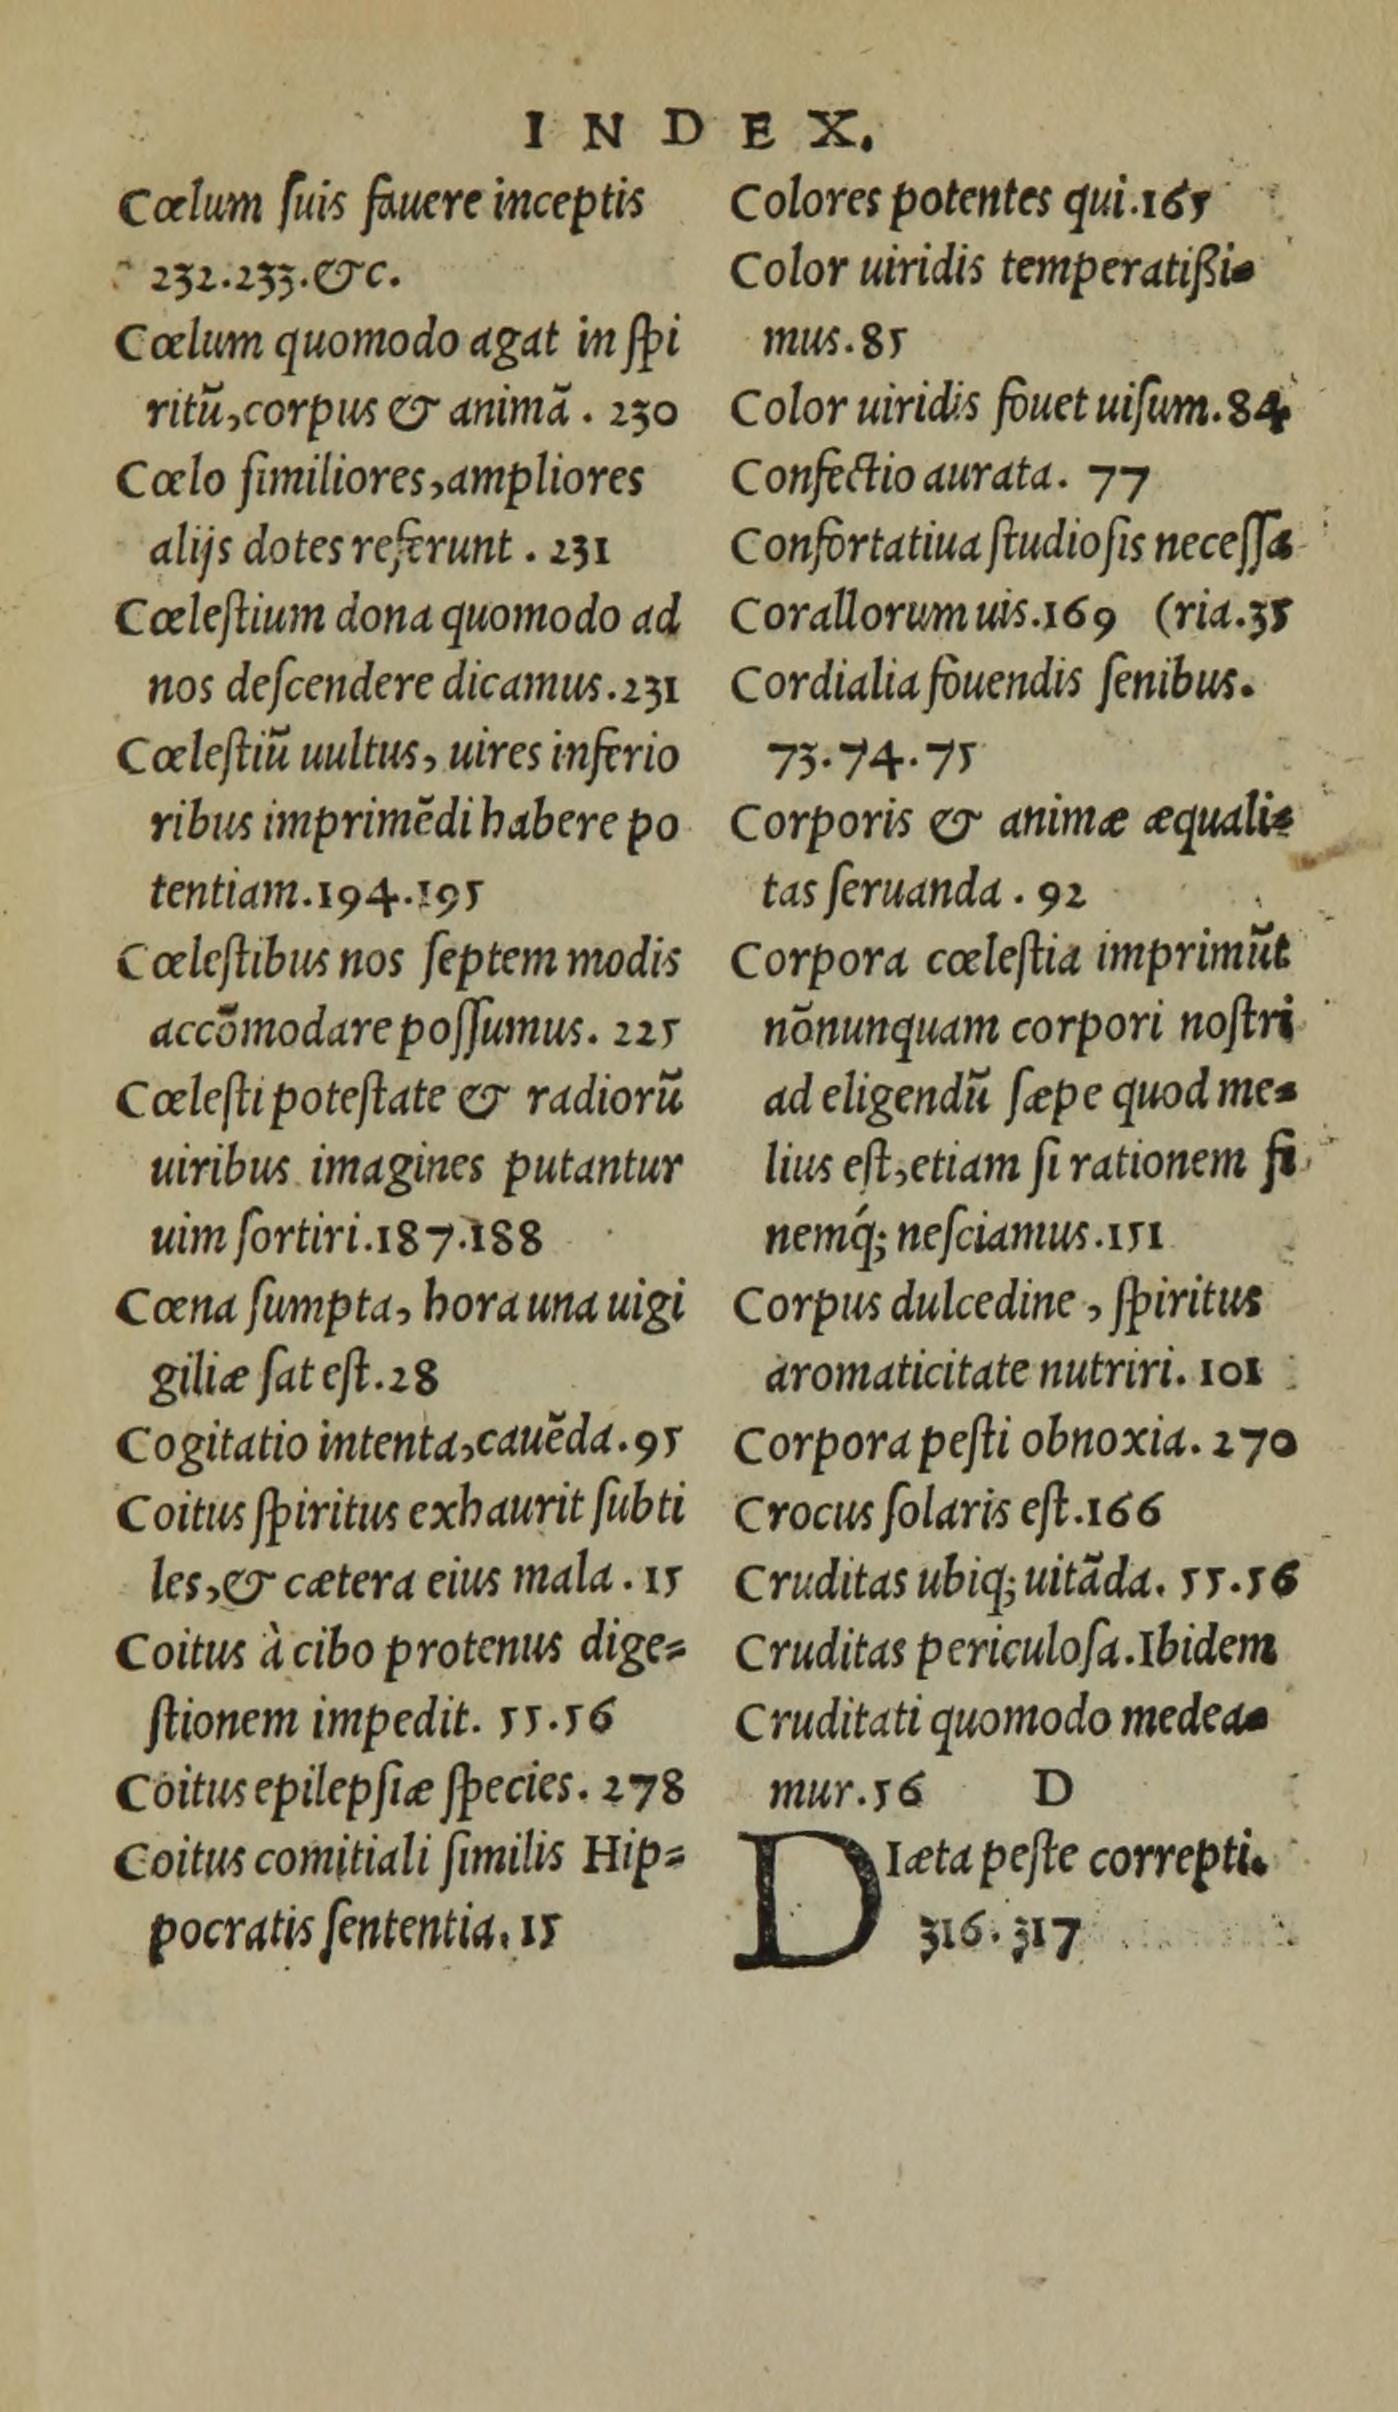 INDEX.
Cœlum ſuis fauere inceptis
232.233.&c.
Cœlum quomodo agat in ſpi
ritũ,corpus & animã. 230
Cœlo ſimiliores,ampliores
alijs dotes referunt. 231
Cœleſtium dona quomodo ad
nos deſcendere dicamus.231
Cœleſtiũ uultus, uires inferio
ribus imprimẽdi habere po
tentiam.194.195
Cœleſtibus nos ſeptem modis
accõmodare poſſumus. 225
Cœleſti poteſtate & radiorũ
uiribus imagines putantur
uim ſortiri.187.188
Cœna ſumpta, hora una uigi
giliæ ſat eſt.28
Cogitatio intenta,cauẽda.95
Coitus ſpiritus exhaurit ſubti
les,& cætera eius mala. 15
Coitus à cibo protenus dige=
ſtionem impedit. 55.56
Coitus epilepſiæ ſpecies. 278
Coitus comitiali ſimilis Hip=
pocratis ſententia. 15
Colores potentes qui.165
Color uiridis temperatißi=
mus.85
Color uiridis fouet uiſum.84
Confectio aurata. 77
Confortatiua ſtudioſis neceſſa
Corallorum uis.169 (ria.35
Cordialia fouendis ſenibus.
73.74.75
Corporis & animæ æquali=
tas ſeruanda. 92
Corpora cœleſtia imprimũt
nõnunquam corpori noſtri
ad eligendũ ſæpe quod me=
lius eſt,etiam ſi rationem fi
nemq́; neſciamus.151
Corpus dulcedine, ſpiritus
aromaticitate nutriri. 101
Corpora peſti obnoxia. 270
Crocus ſolaris eſt.166
Cruditas ubiq; uitãda. 55.56
Cruditas periculoſa.Ibidem
Cruditati quomodo medea=
mur.56 D
DIæta peſte correpti.
316.317